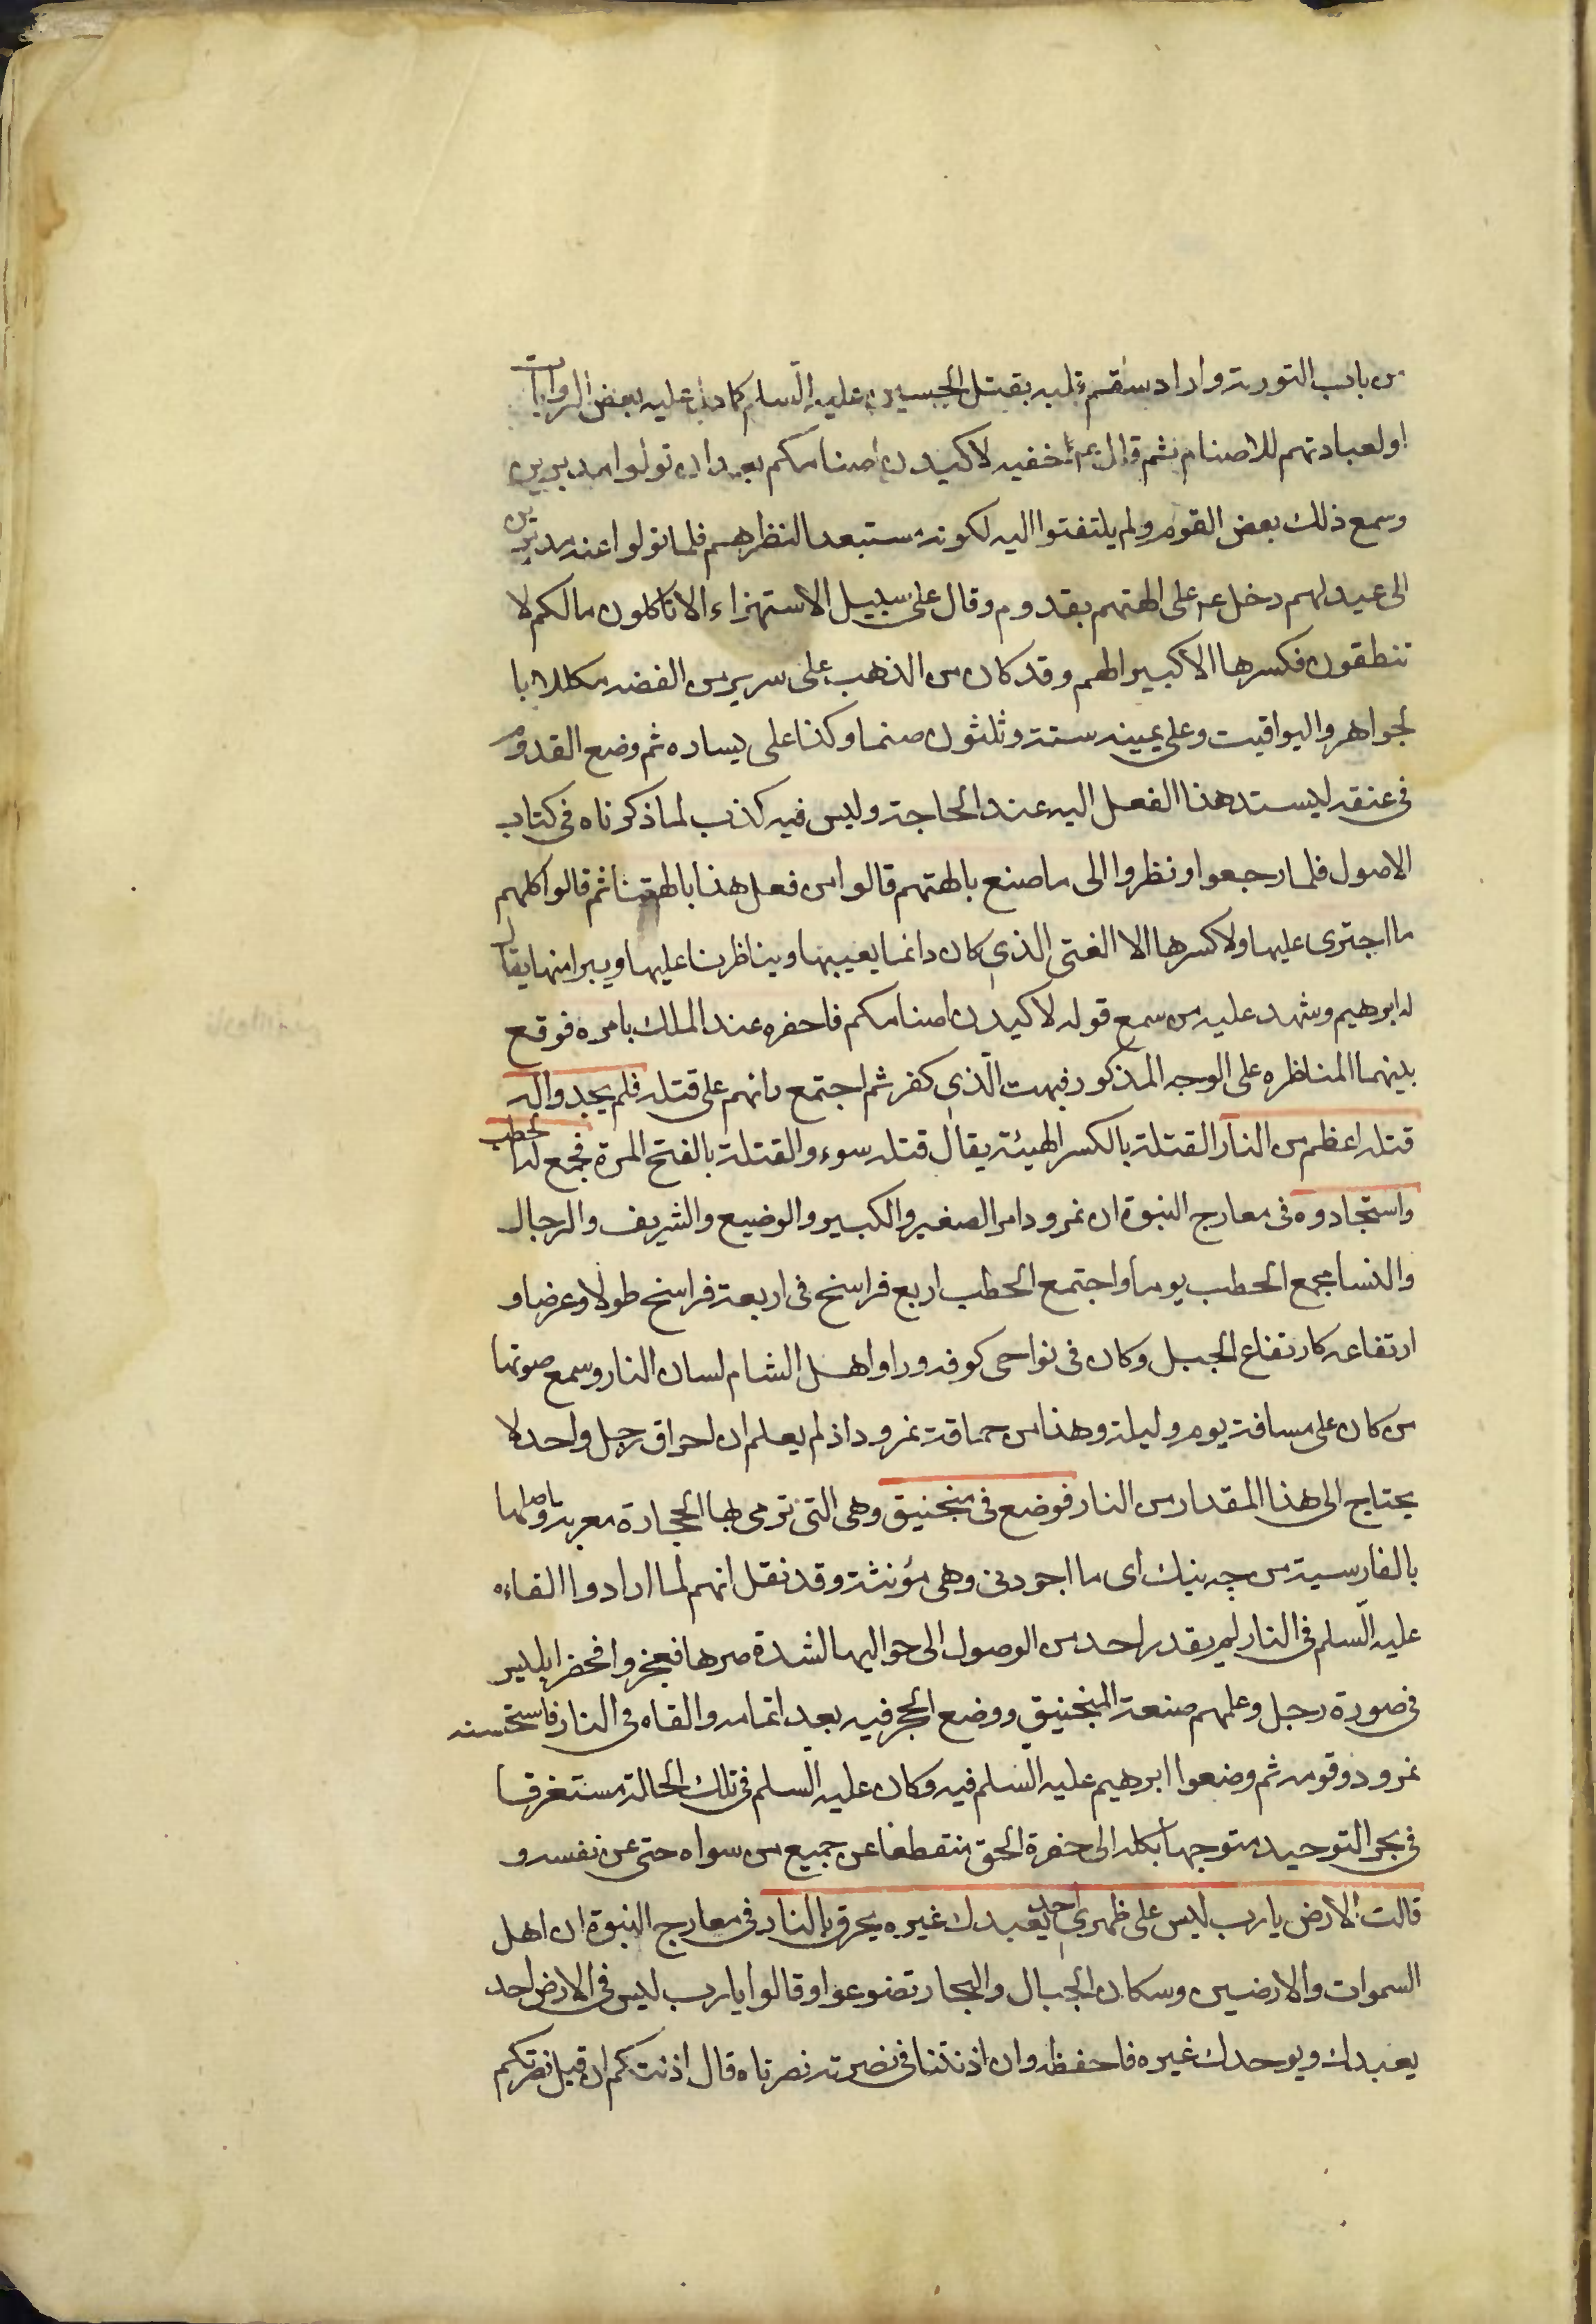 من باب التورية واراد سقم قلبه بقتل الحسين عليه السلام كما دل عليه بعض الروايات
او لعبادتهم للاصنام ثم قال عم خفية لاكيدن اصنامكم بعد ان تولوا مدبرين
وسمع ذلك بعض القوم ولم يلتفتوا اليه لكونه مستبعدا لنظرهم فلما تولوا عنه مدبرين
الى عيد لهم دخل عم على الهتهم بقدوم وقال على سبيل الاستهزاء الا تاكلون مالكم لا
تنطقون فكسرها الا كبيرا لهم وقد كان من الذهب على سرير من الفضه مكللا با
لجواهر واليواقيت وعلى يمينه ستة وثلثون صنما وكذا على يساره ثم وضع القدوم
فى عنقه ليسند هذا الفعل اليه عند الحاجة وليس فيه كذب لما ذكرناه فى كتاب
الاصول فلما رجعوا ونظروا الى ما صنع بالهتهم قالوا من فعل هذا بالهتنا ثم قالوا كلهم
ما اجترى عليها ولا كسرها الا الفتى الذي كان دائما يعيبها ويناظرنا عليها ويبرا منها يقال
له ابرهيم وشهد عليه من سمع قوله لاكيدن اصنامكم فاحضره عند الملك بامره فوقع
بينهما المناظره على الوجه المذكور فبهت الذي كفر ثم اجتمع رايهم على قتله فلم يجدوا له
قتله اعظم من النار القتلة بالكسر الهيئة يقال قتله سوء والقتلة بالفتح المرة فجمع له الحطب
واستجادوه فى معارج النبوة ان نمرود امر الصغير والكبير والوضيع والشريف والرجال
والنسا بجمع الحطب يوما واجتمع الحطب اربع فراسخ فى اربعة فراسخ طولا وعرضا و
ارتفاعه كارتفاع الجبل وكان فى نواحى كوفه وراوا اهل الشام لسان النار وسمع صوتها
من كان على مسافة يوم وليلة وهذا من حماقة نمرود اذ لم يعلم ان احراق رجل واحد لا
يحتاج الى هذا المقدار من النار فوضع فى منجنيق وهى التى ترمى بها الحجارة معربه واصلها
بالفارسية من چه نيك اى ما اجودنى وهى مؤنثة وقد نقل انهم لما ارادوا القاءه
عليه السلم فى النار لم يقدر احد من الوصول الى حواليها لشدة حرها فعجزوا فحضر ابليس
فى صورة رجل وعلمهم صنعة المنجنيق ووضع الحجر فيه بعد اتمامه والقاه فى النار فاستحسنه
نمرود وقومه ثم وضعوا ابرهيم عليه السلم فيه وكان عليه السلم فى تلك الحالة مستغرقا
فى بحر التوحيد متوجها بكله الى حضرة الحق منقطعا عن جميع من سواه حتى عن نفسه و
قالت الارض يارب ليس على ظهري احد يعبدك غيره يحرق بالنار فى معارج النبوة ان اهل
السموات والارضين وسكان الجبال والبحار تضرعوا وقالوا يارب ليس فى الارض احد
يعبدك ويوحدك غيره فاحفظه وان اذنتنا فى نصرته نصرناه قال اذنتكم ان قبل نصرتكم